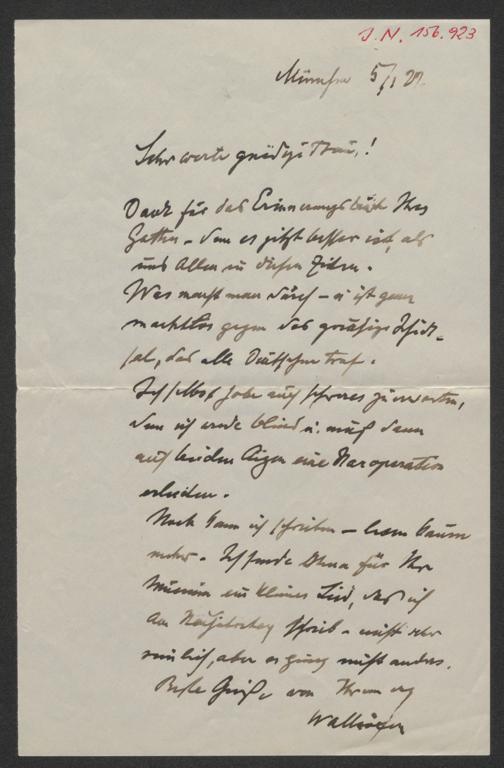 J.N. 156.923
München 5/I 2
Sehr werte gnädige Frau!
Dank für das Erinnerungsbild Ihres
Gatten – dem es jetzt besser ist, als
uns Allen in diesen Zeiten.
Was macht man durch – u. ist ganz
machtlos gegen das grausige Schick-
sal, das alle Deutschen traf.
Ich selbst habe auch schweres zu erwarten,
denn ich werde blind u. muß dann
auf beiden Augen eine Staroperation
erleiden.
Noch kann ich schreiben – lesen kaum
mehr. Ich sende Ihnen für Ihr
Museum ein kleines Lied, das ich
am Neujahrstag schrieb – nicht sehr
reinlich, aber es ging nicht anders.
Beste Grüße von Ihrem erg